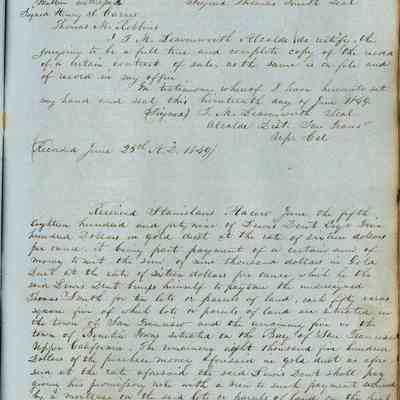 written interlined. Signed Thomas Smith Seal
Signed Henry A. Carnes
Thomas M. Robbins
I T. M. Leavenworth Alcalde do certify the
foregoing to be a full true and complete copy of the record
of a certain contract of sale, as the same is on file and
of record in my office
In testimony whereof I have hereunto set
my hand and seal this day of June 1849
(Signed) T. M. Leavenworth Seal
Alcalde Dist. San Franco
Upr Cal
(Recorded June 25th A.D. 1849)
Received Stanislaus June the fifth
Eighteen hundred and forty nine of Lewis Dent Esqr five
hundred Dollars in gold dust at the rate of sixteen dollars
per ounce. it being part payment of a certain sum of
money to wit the sum of nine thousand dollars in Gold
Dust at the rate of sixteen dollars per ounce which he the
said Lewis Dent binds himself to pay to me the undersigned
Thomas Smith for ten lots or parcels of land, each fifty varas
square five of which lots or parcels of land are situated in
the town of San Francisco and the remaining five in the
town of Benicia situated on the Bay of San Francisco
Upper California. The remaining eight thousand five hundred
Dollars of the purchase money aforesaid in gold dust as afore
said at the rate aforesaid the said Lewis Dent shall pay
giving his promissory note with a view to such payment secured
by a mortgage on the said lots or parcels of land on the first